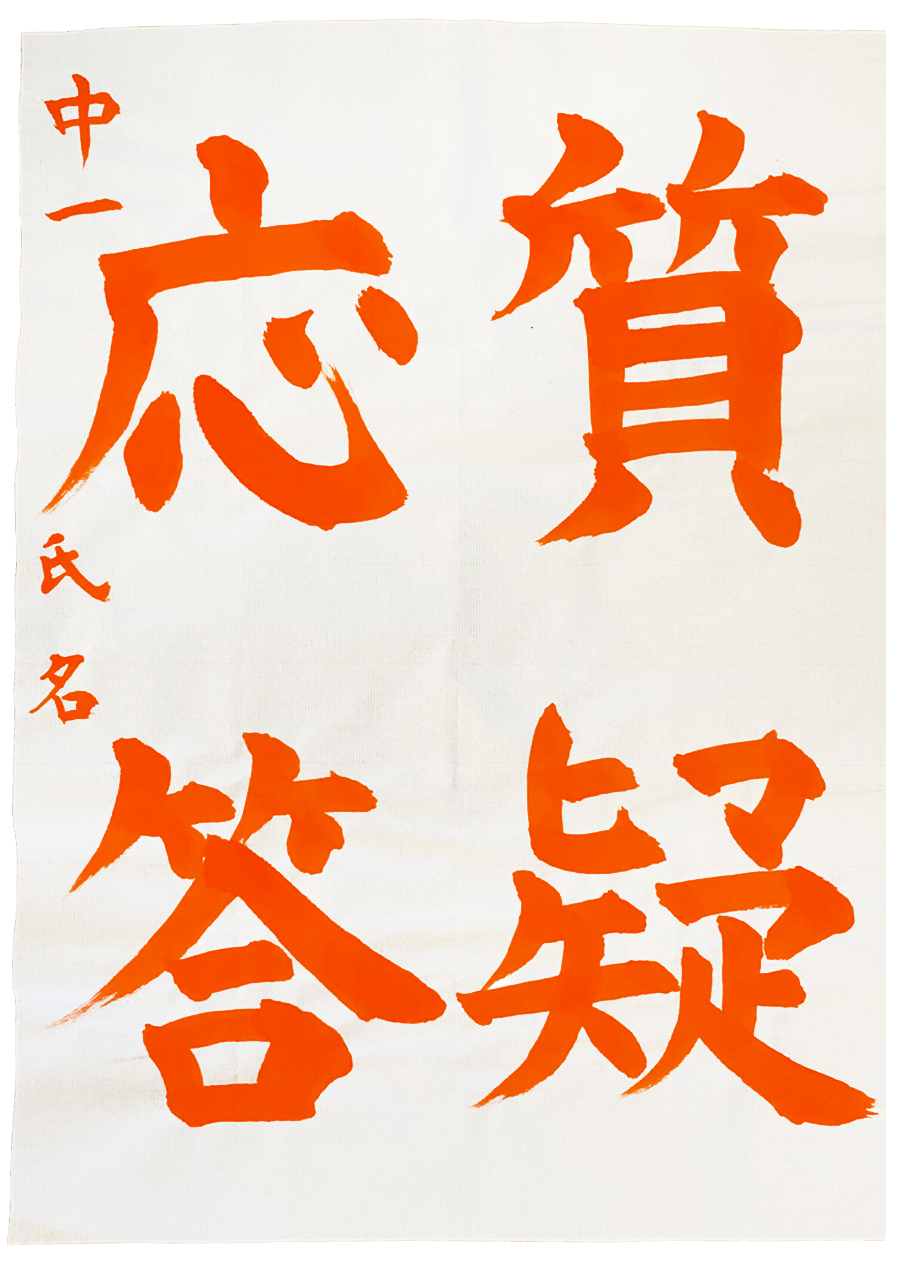 質疑
応答
中一 氏名